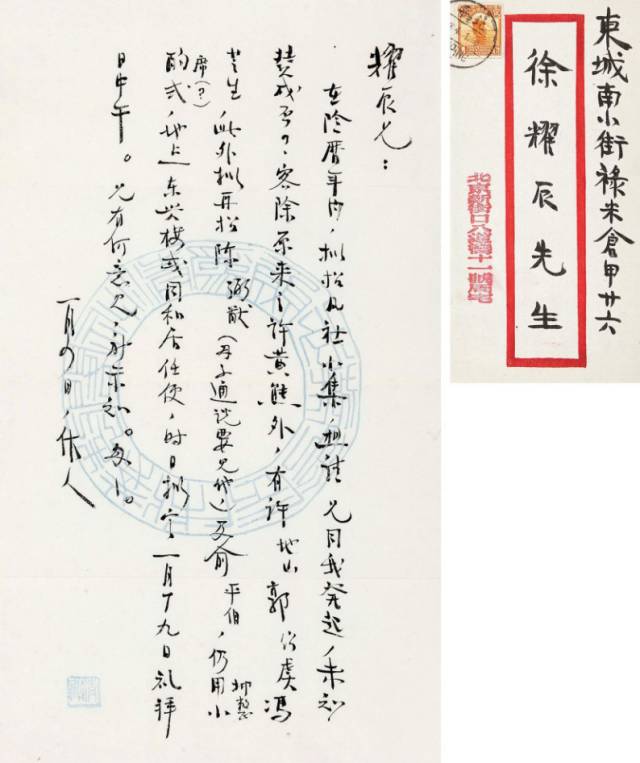 東城南小街祿米倉甲廿六
徐耀辰先生
北京新街口八道灣十一號周宅
耀辰兄：
在阴曆年内，拟招凡社小集，想請兄同我発起，未知
赞成否？客除原来之許黄熊外，有許地山郭绍虞馮
芝生，此外拟再招陈弼猷（通说要兄代）及俞平伯，仍用小
席（？）
酌式，地上东兴楼或同和居任便，时日拟定一月十九日礼拜
日中午。兄有何意见，示知。匆匆。
一月四日，作人